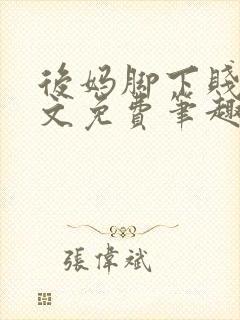 後妈脚下贱
文免费笔趣
張偉斌